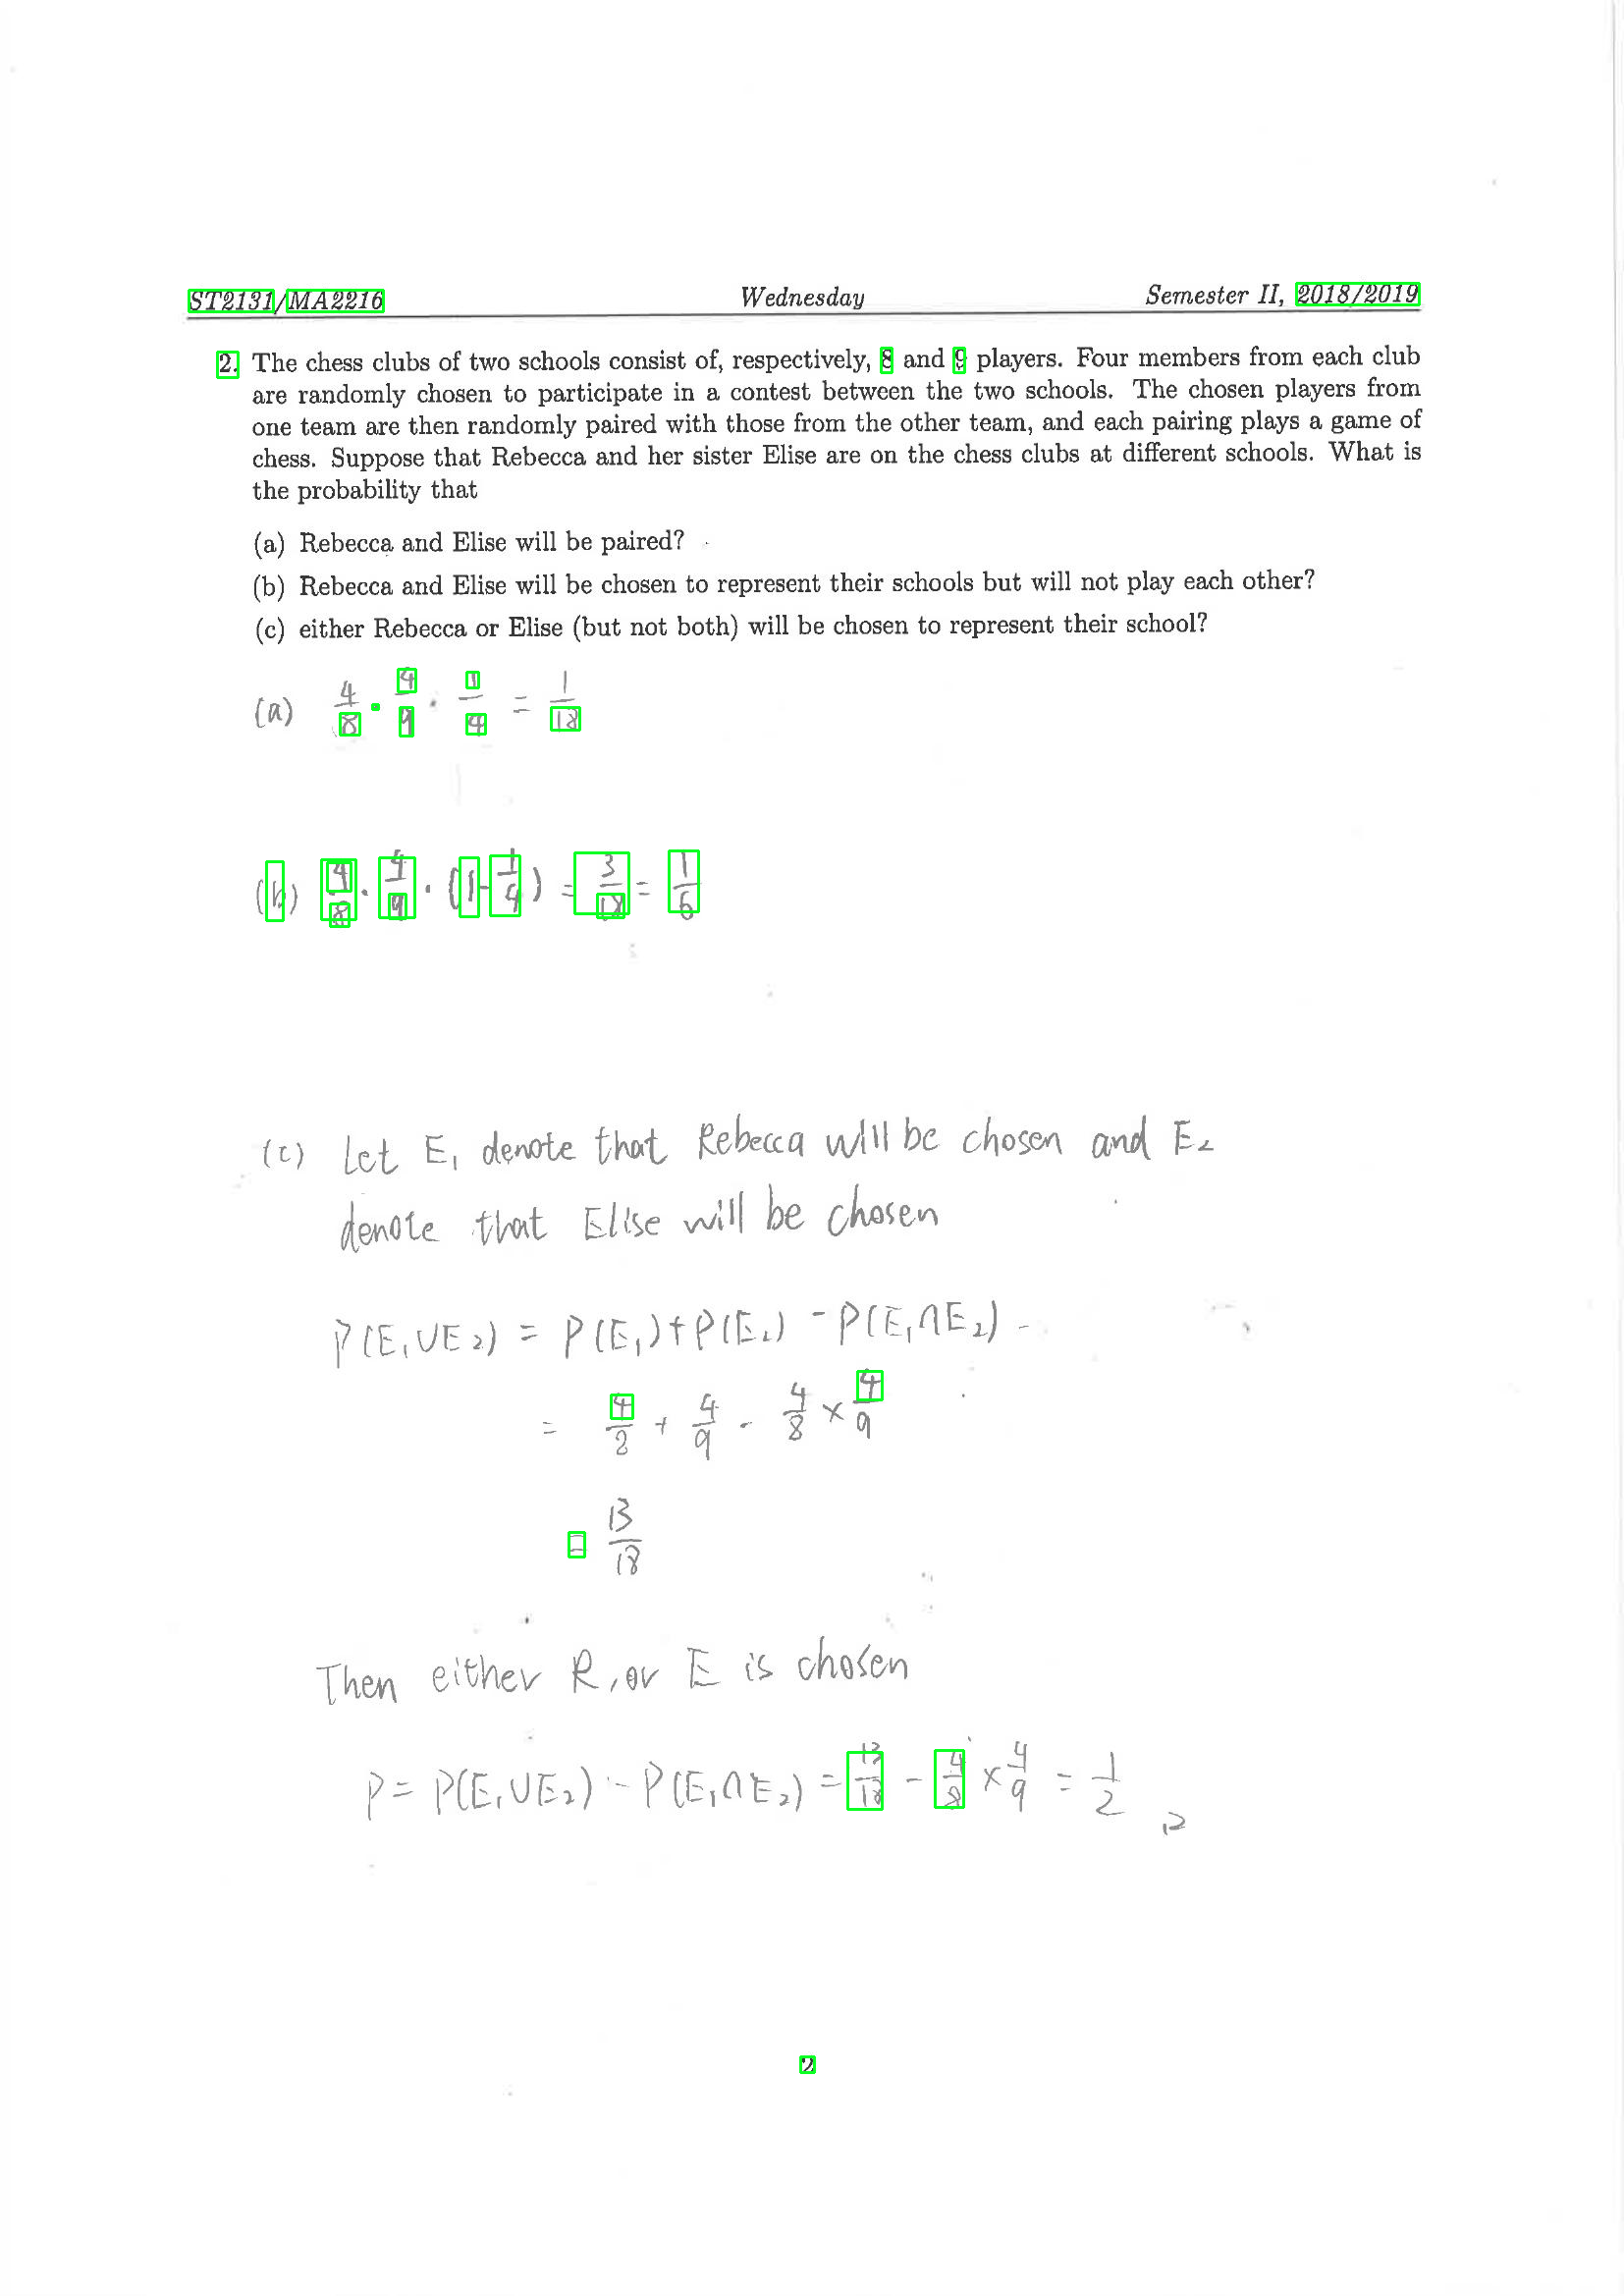 ST2131/MA2216 Wednesday Semester II, 2018/2019
2. The chess clubs of two schools consist of, respectively, 8 and 9 players. Four members from each club
are randomly chosen to participate in a contest between the two schools. The chosen players from
one team are then randomly paired with those from the other team, and each pairing plays a game of
chess. Suppose that Rebecca and her sister Elise are on the chess clubs at different schools. What is
the probability that
(a) Rebecca and Elise will be paired?
(b) Rebecca and Elise will be chosen to represent their schools but will not play each other?
(c) either Rebecca or Elise (but not both) will be chosen to represent their school?
(a) 4/8 · 4/9 · 1/4 = 1/18
(b) 4/8 · 4/9 · (1-1/4) = 3/18 = 1/6
(c) Let E₁ denote that Rebecca will be chosen and E₂
denote that Elise will be chosen
P(E₁∪E₂) = P(E₁)+P(E₂) - P(E₁∩E₂)
= 4/8 + 4/9 - 4/8 × 4/9
= 13/18
Then either R, or E is chosen
P = P(E₁∪E₂) - P(E₁∩E₂) = 13/18 - 4/8 × 4/9 = 1/2
2